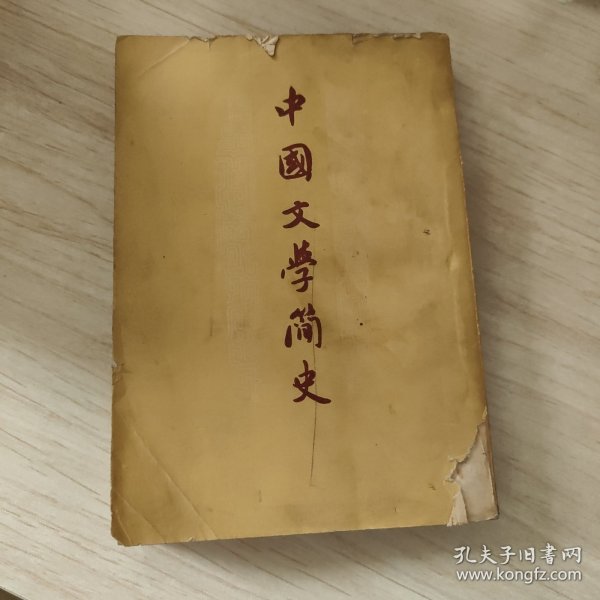 中國文學简史
孔夫子旧書网
www.kongfz.com